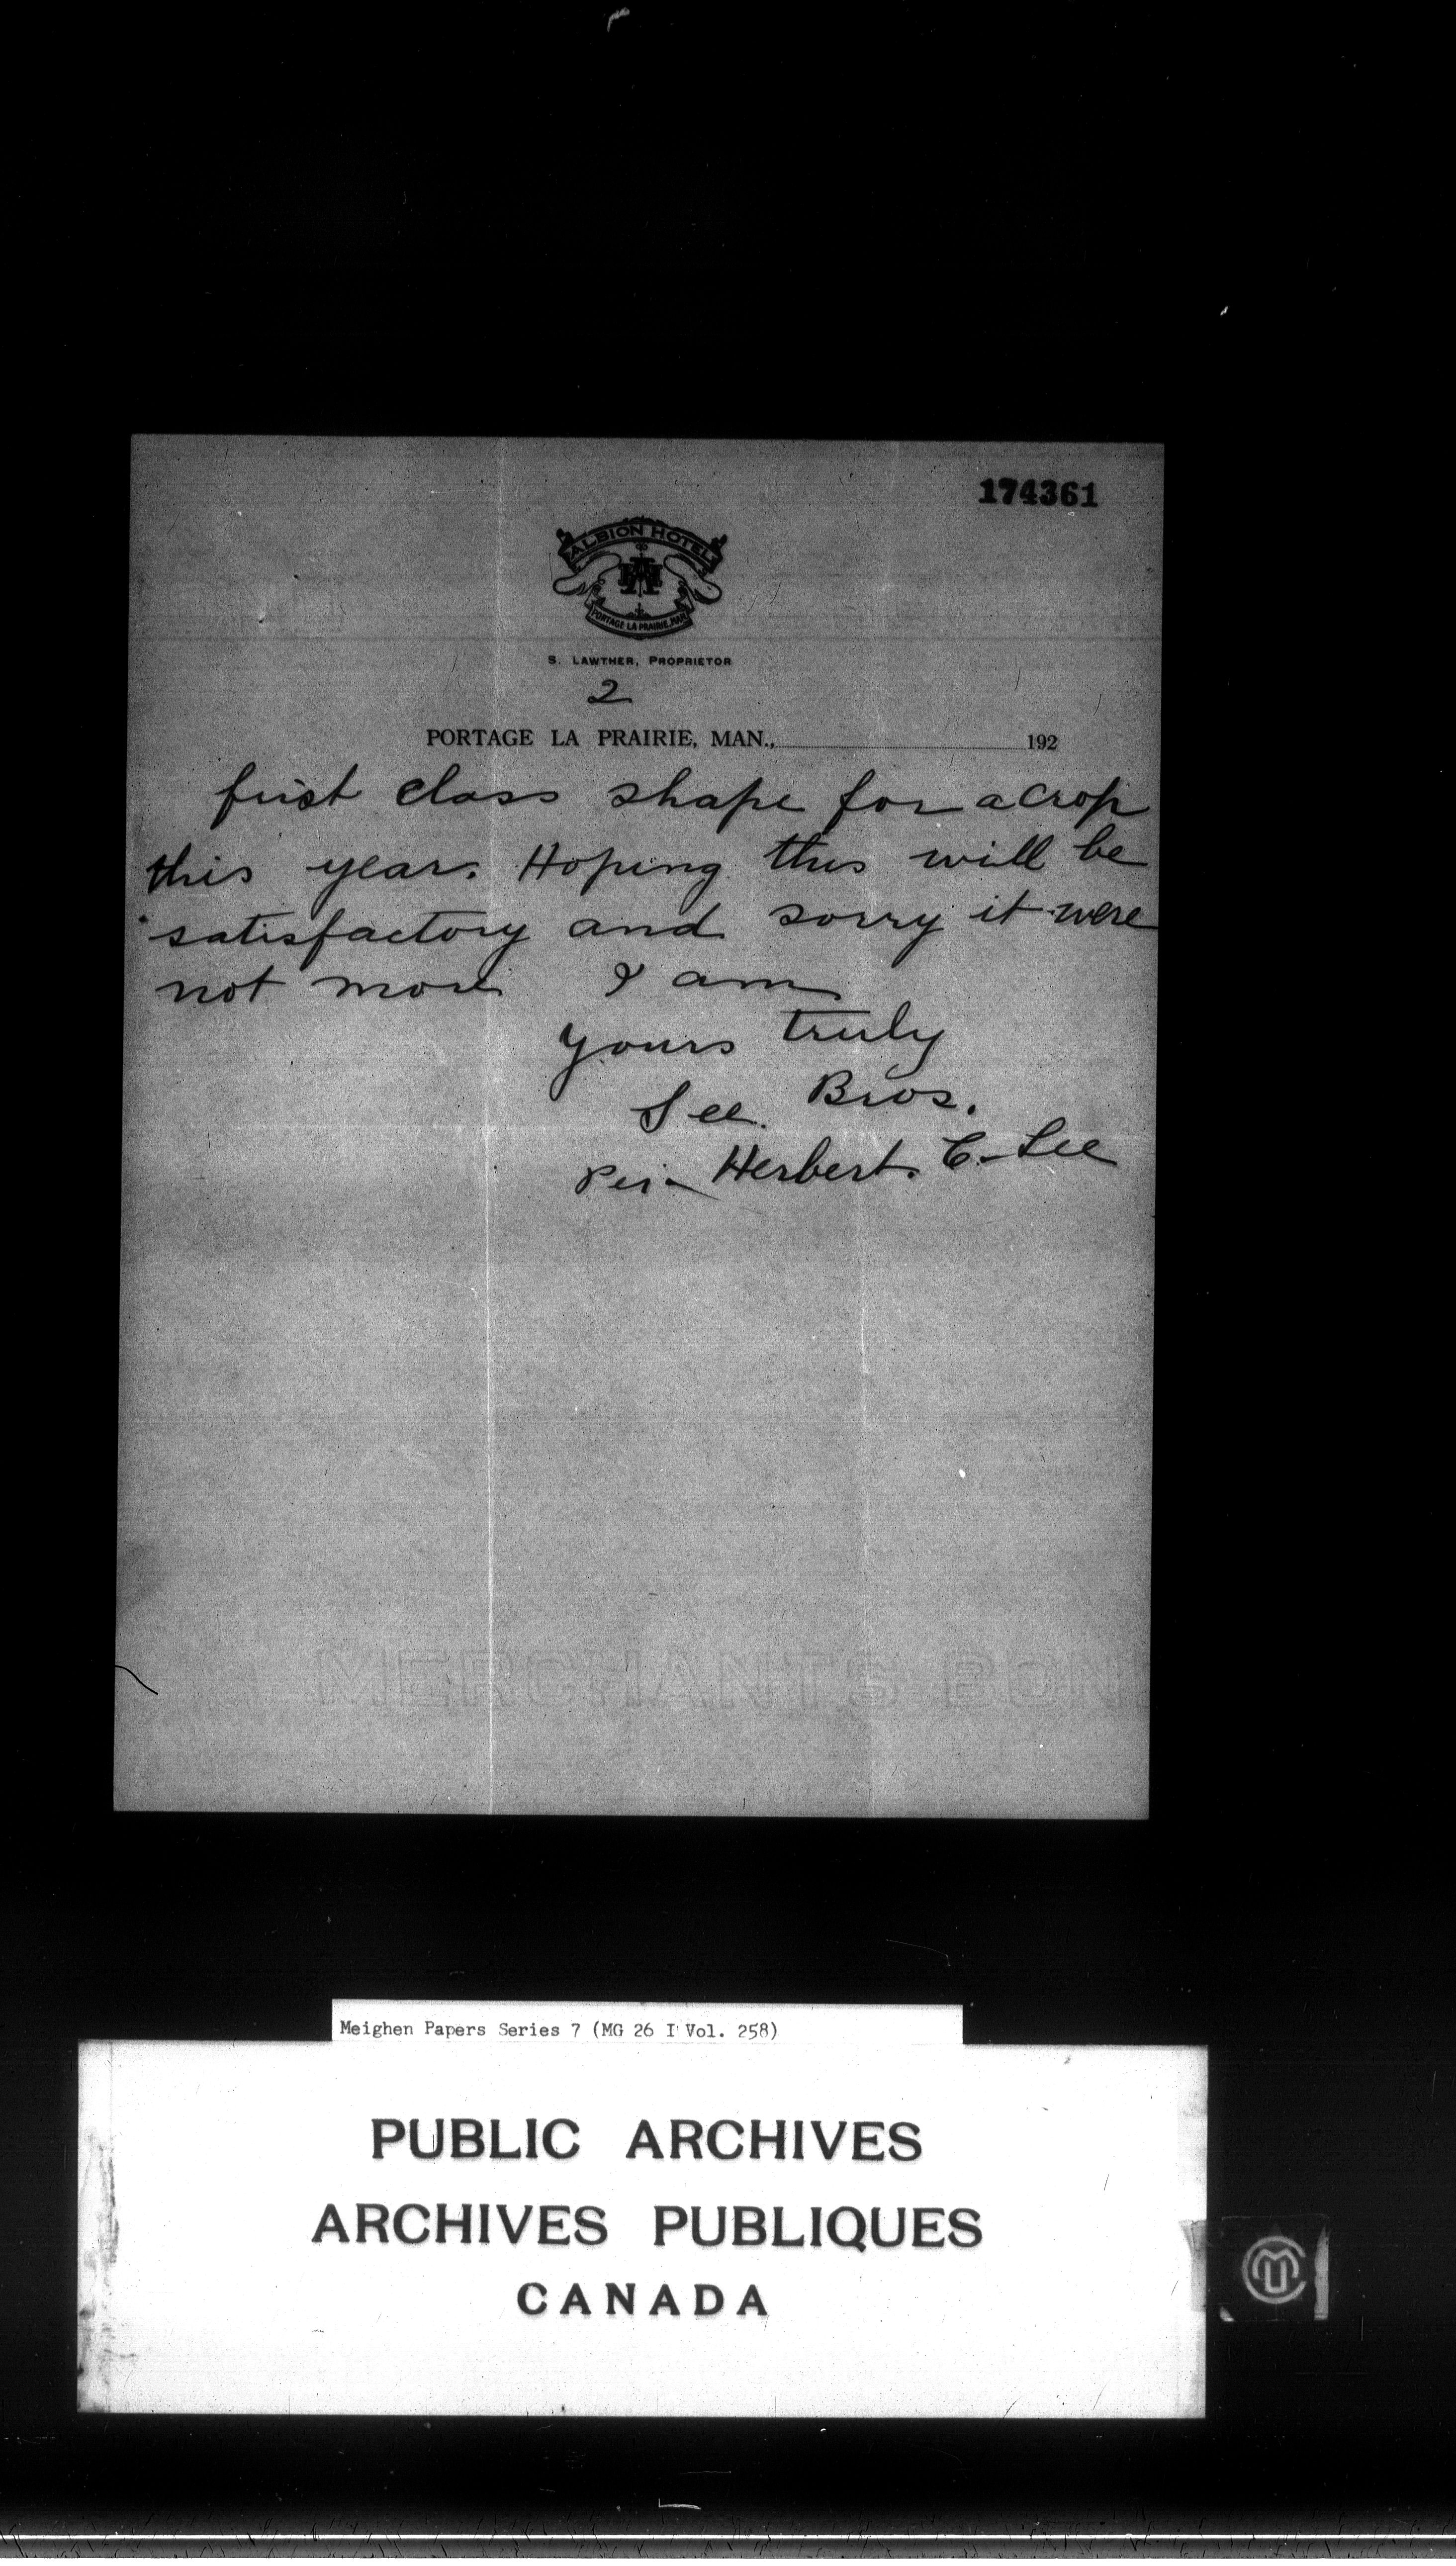 174361
ALBION HOTEL
PORTAGE LA PRAIRIE, MAN.
S. LAWTHER, PROPRIETOR
2
PORTAGE LA PRAIRIE, MAN., 192
first class shape for a crop
this year. Hoping this will be
satisfactory and sorry it were
not more I am
yours truly
Lee Bros.
Per- Herbert. C. Lee
MERCHANTS BON
Meighen Papers Series 7 (MG 26 I Vol. 258)
PUBLIC ARCHIVES
ARCHIVES PUBLIQUES
CANADA